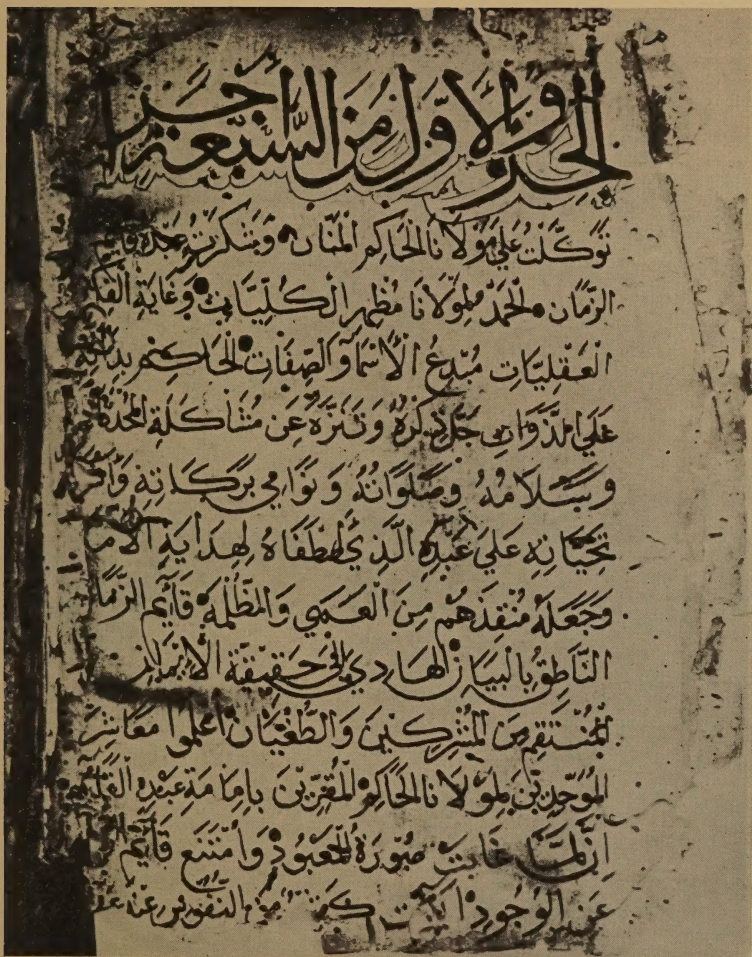 الجزو الاول من السبعة اجزا
توكلت على مولانا الحاكم المنان وتشكرت عبده قايم
الزمان الحمد لمولانا مظهر الكليات وغاية
العقليات مبدع الأسما والصفات الحاكم
على الذوات جل ذكره وتنزه عن مشاكلة
وسلامه وصلواته ونوامي بركاته
تحياته على عبده الذي اصطفاه لهداية الامم
وجعله منقذهم من العمي والمظلمه قايم الزما
الناطق بالبيان الهادي الى حقيقة الايمان
المنتقم من المشركين والطغيان اعلموا معاشر
الموحدين لمولانا الحاكم المقرين بامامة عبده القايم
ان لما غابت صورة المعبود وامتنع قايم
عند الوجود من النفوس عنه